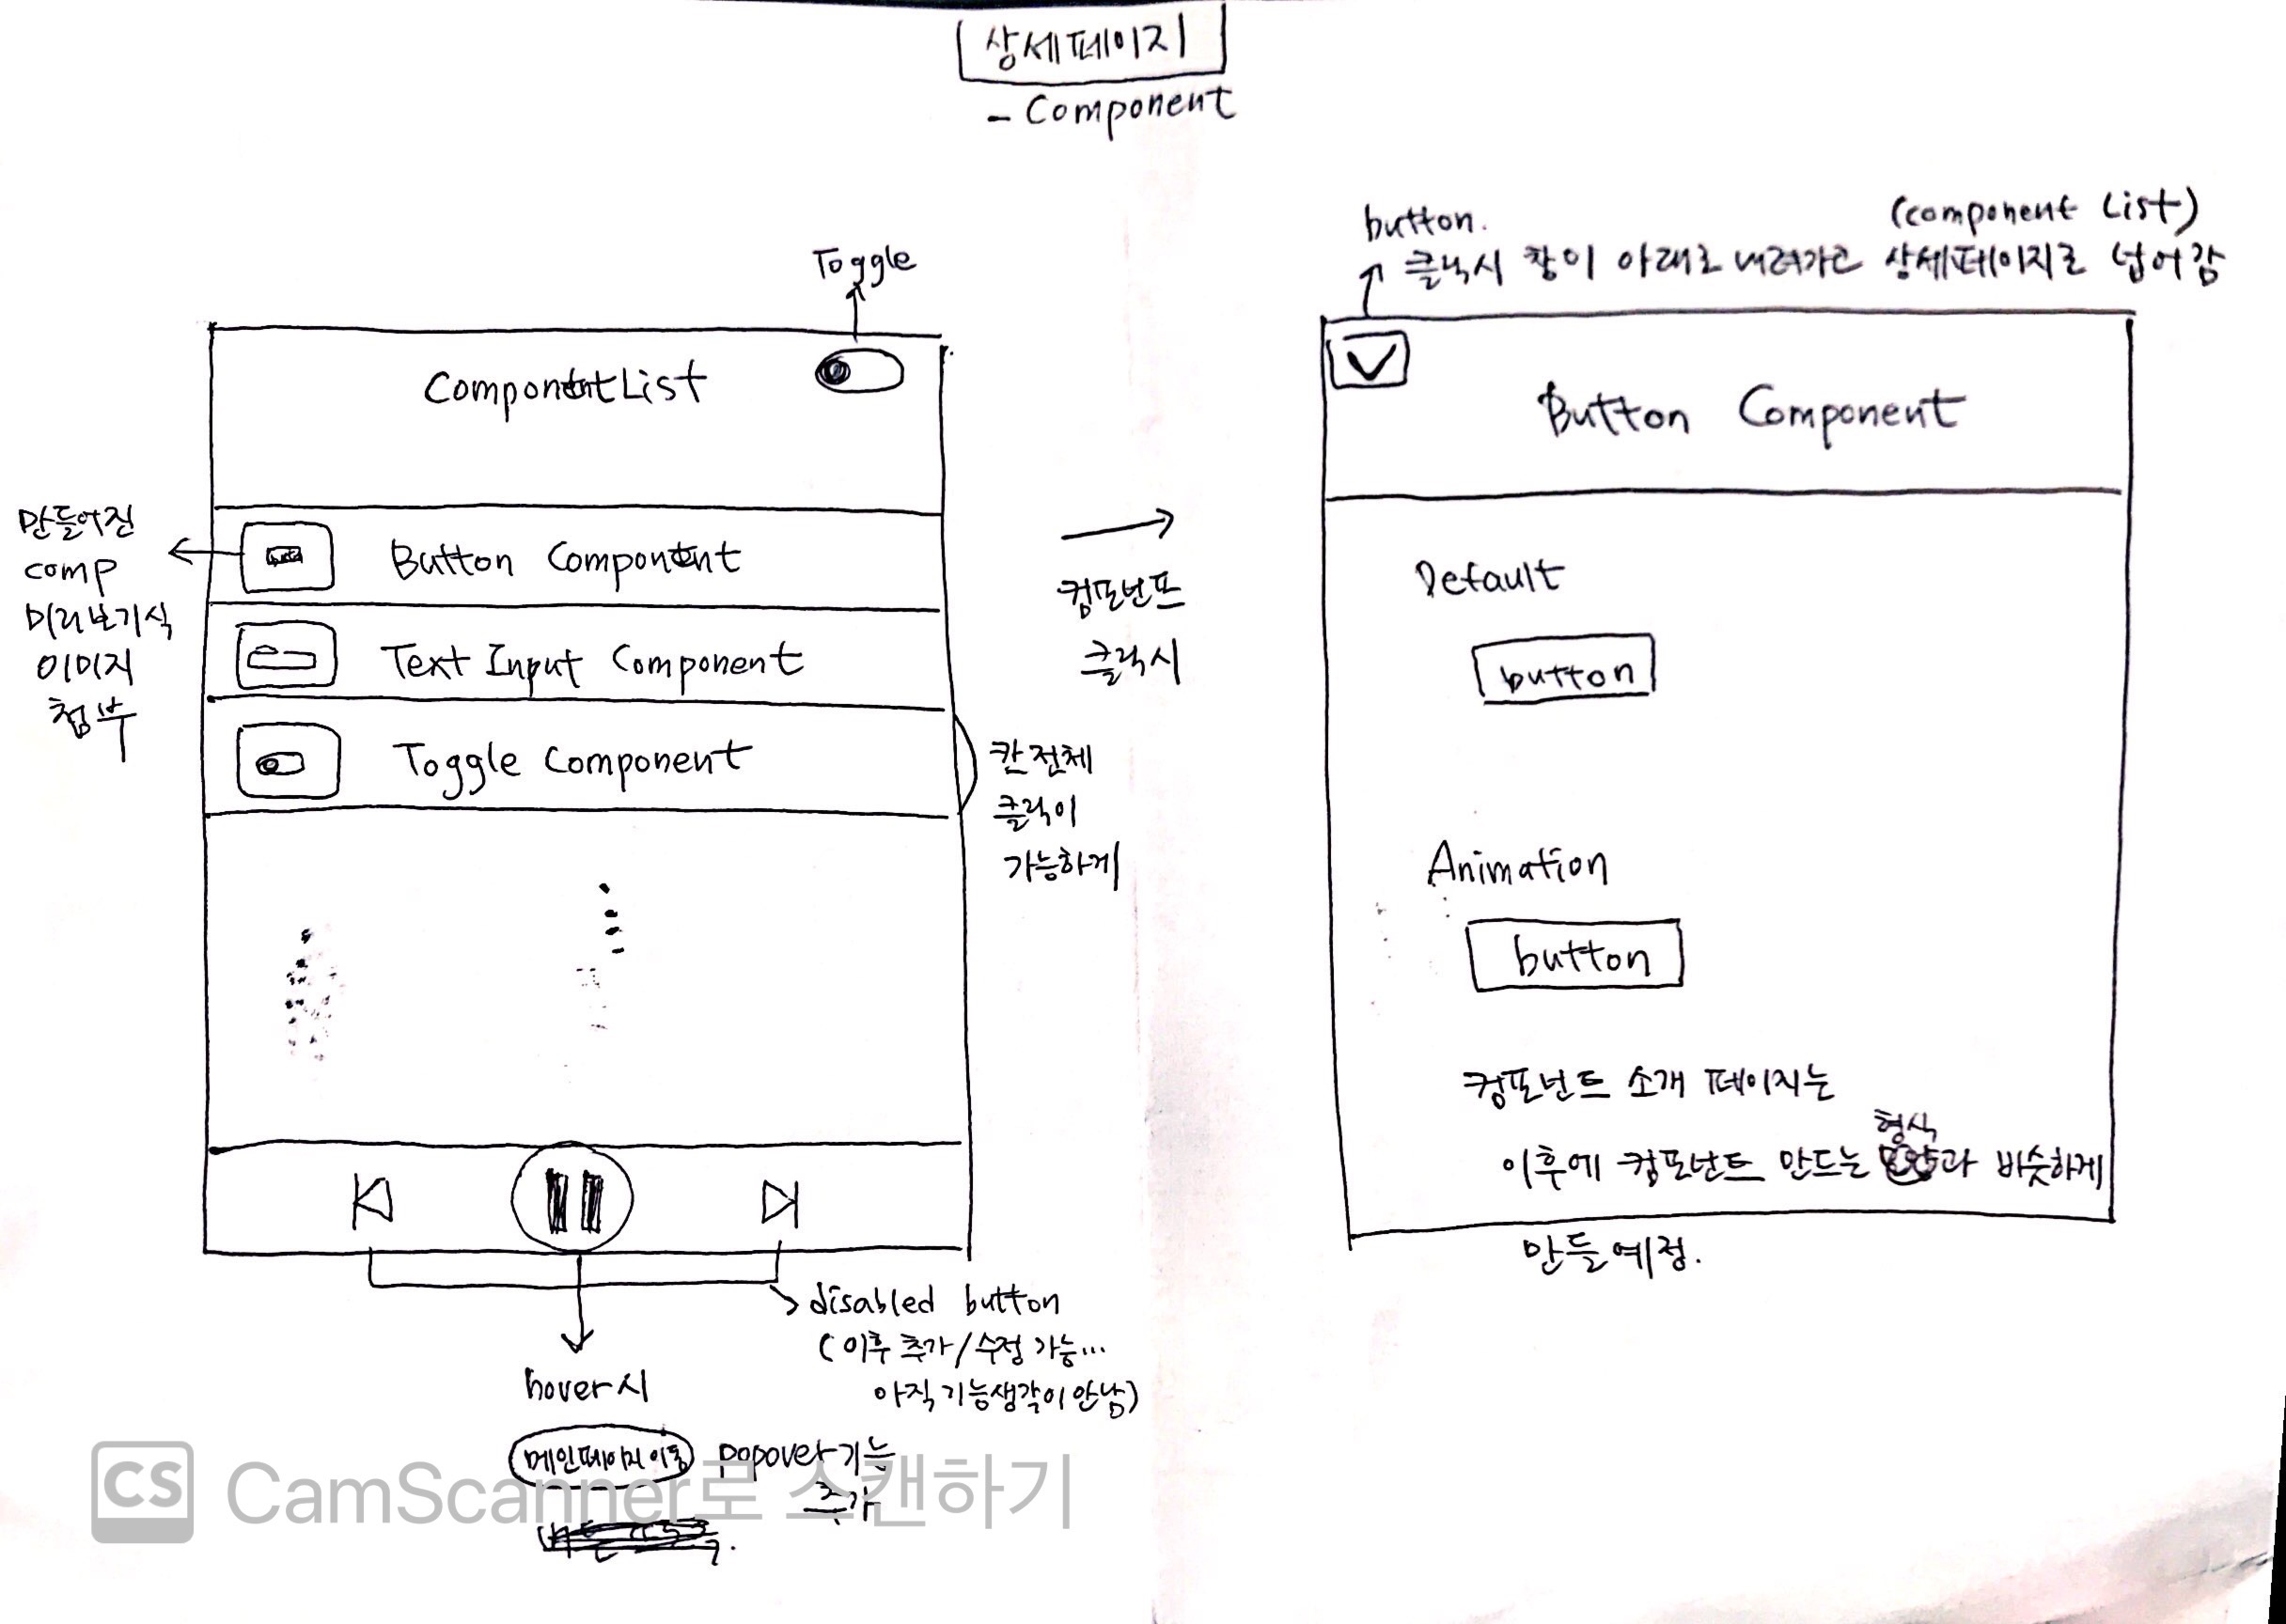 상세페이지
- Component
Toggle
ComponentList
만들어진
comp
미리보기식
이미지
첨부
Button Component
Text Input Component
Toggle Component
칸 전체
클릭이
가능하게
컴포넌트
클릭시
disabled button
(이후 추가/수정 가능...
아직 기능생각이 안남)
hover시
메인페이지 이동 popover기능
추가
button.
(component List)
클릭시 창이 아래로 내려가고 상세페이지로 넘어감
Button Component
Default
button
Animation
button
컴포넌트 소개 페이지는
형식
이후에 컴포넌트 만드는 과 비슷하게
만들예정.
CS CamScanner로 스캔하기